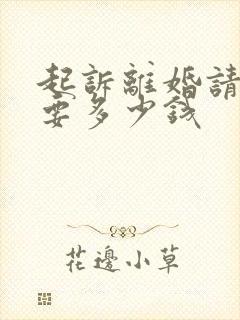 起訴離婚請
要多少錢
花邊小草